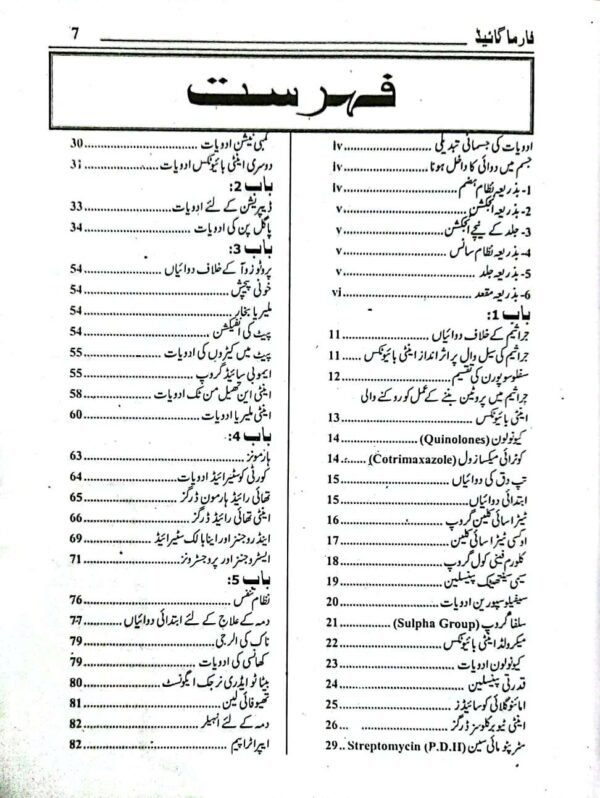 فارما گائیڈ 7
فہرست
ادویات کی جسمانی تبدیلی ..................iv
جسم میں دوائی کا داخل ہونا ..................iv
1- بذریعہ نظام ہضم ..................iv
2- بذریعہ انجکشن ..................v
3- جلد کے نیچے انجکشن ..................v
4- بذریعہ نظام سانس ..................v
5- بذریعہ جلد ..................v
6- بذریعہ مقعد ..................vi
باب 1:
جراثیم کے خلاف دوائیاں ..................11
جراثیم کی سیل وال پر اثر انداز اینٹی بائیوٹکس ......11
سفلوسپورن کی تقسیم ..................12
جراثیم میں پروٹین بننے کے عمل کو روکنے والی
اینٹی بائیوٹکس ..................13
کینولون (Quinolones) ..................14
کوٹرائی میکسازول (Cotrimaxazole) ......14
تپ دق کی دوائیاں ..................15
ابتدائی دوائیاں ..................15
ٹیٹراسائی کلین گروپ ..................16
اوکسی ٹیٹراسائی کلین ..................17
کلورم فینی کول گروپ ..................18
سیمی سینتھیٹک پینسلین ..................19
سیفیلوسپورین ادویات ..................20
سلفا گروپ (Sulpha Group) ..................21
میکرولڈ اینٹی بائیوٹکس ..................22
کینولون ادویات ..................23
قدرتی پینسلین ..................24
امائنو گلائی کوسائیڈز ..................25
اینٹی ٹیوبرکلوسز ڈرگز ..................26
سٹرپٹومائی سین Streptomycin (P.D.II) ..29
کمبی نیشن ادویات ..................30
دوسری اینٹی بائیوٹکس ادویات ..................31
باب 2:
ڈیپریشن کے لئے ادویات ..................33
پاگل پن کی ادویات ..................34
باب 3:
پروٹوزوآ کے خلاف دوائیاں ..................54
خونی پیچش ..................54
ملیریا بخار ..................54
پیٹ کی انفیکشن ..................54
پیٹ میں کیڑوں کی ادویات ..................55
ایموبی سائیڈ گروپ ..................55
اینٹی این تھیل من ٹک ادویات ..................58
اینٹی ملیریا ادویات ..................60
باب 4:
ہارمونز ..................63
کورٹی کوسٹیرائیڈ ادویات ..................64
تھائی رائیڈ ہارمون ڈرگز ..................65
اینٹی تھائی رائیڈ ڈرگز ..................66
اینڈروجنز اور اینابالک سٹیرائیڈ ..................69
ایسٹروجنز اور پروجسٹرونز ..................71
باب 5:
نظام تنفس ..................76
دمہ کے علاج کے لئے ابتدائی دوائیاں ......77
ناک کی الرجی ..................79
کھانسی کی ادویات ..................79
بیٹا ٹو ایڈری نرجک ایگونسٹ ..................80
تھیوفائی لین ..................81
دمہ کے لئے انہیلر ..................82
ایپراٹراپیم ..................82